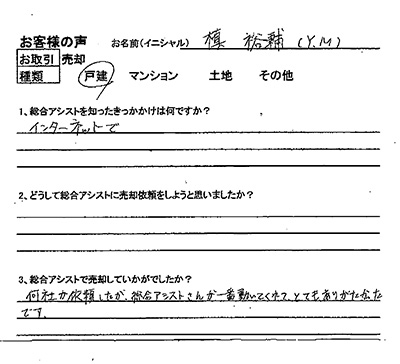 お客様の声 お名前(イニシャル) 槙 裕輔 (Y.M)
お取引 売却
種類 戸建 マンション 土地 その他
1、総合アシストを知ったきっかけは何ですか?
インターネットで
2、どうして総合アシストに売却依頼をしようと思いましたか?
3、総合アシストで売却していかがでしたか?
何社か依頼したが、総合アシストさんが一番動いてくれて、とてもありがたかった
です。